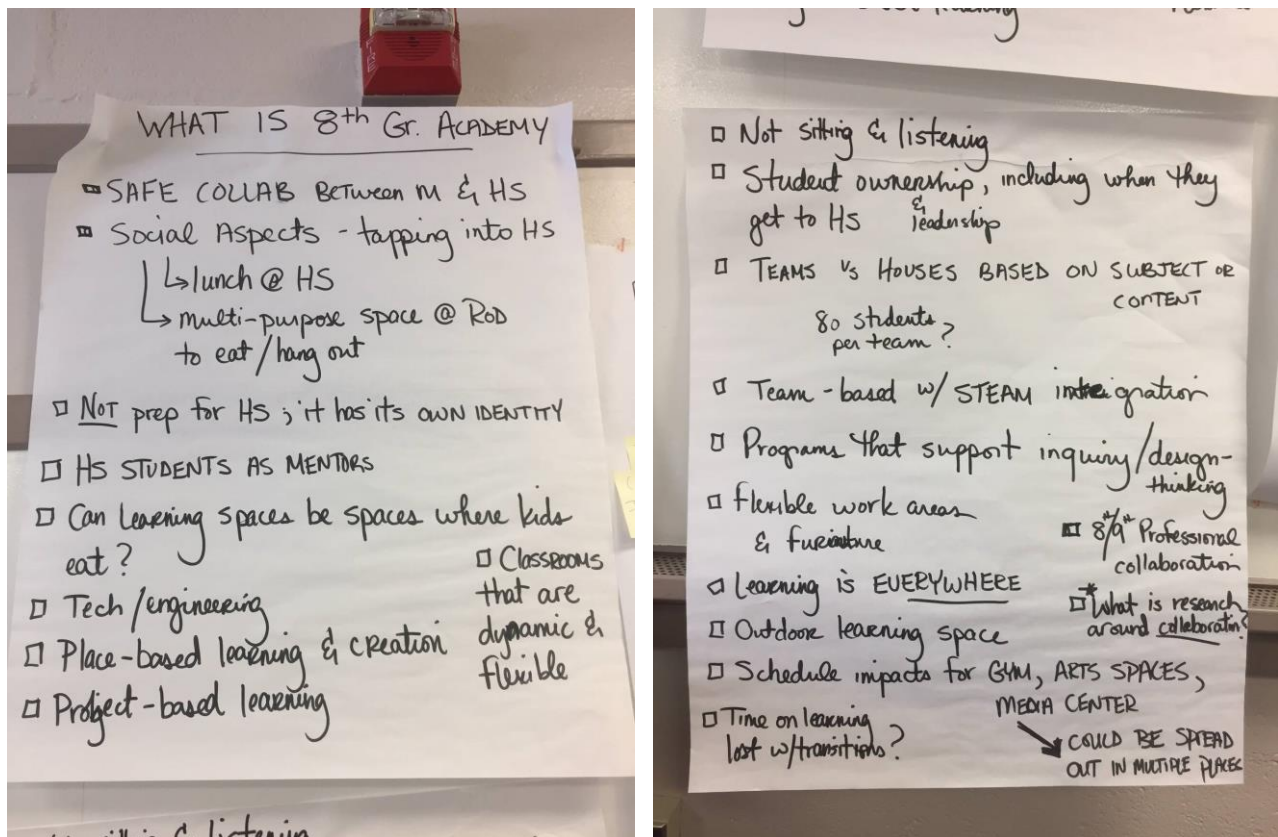 WHAT IS 8th Gr. ACADEMY
SAFE COLLAB BETWEEN M & HS
Social Aspects - tapping into HS
lunch @ HS
multi-purpose space @ ROD
to eat/hang out
NOT prep for HS; it has its OWN IDENTITY
HS STUDENTS AS MENTORS
Can learning spaces be spaces where kids
eat?
Tech/engineering
Place-based learning & creation
Project-based learning
Classrooms
that are
dynamic &
flexible
& listening
learning
Not sitting & listening
Student ownership, including when they
get to HS & leadership
TEAMS vs HOUSES BASED ON SUBJECT OR
CONTENT
80 students
per team?
Team-based w/ STEAM integration
Programs that support inquiry/design-
thinking
flexible work areas
& furniture
8th/9th Professional
collaboration
Learning is EVERYWHERE
*What is research
around collaboration?
Outdoor learning space
Schedule impacts for GYM, ARTS SPACES,
MEDIA CENTER
COULD BE SPREAD
OUT IN MULTIPLE PLACES
Time on learning
lost w/transitions?